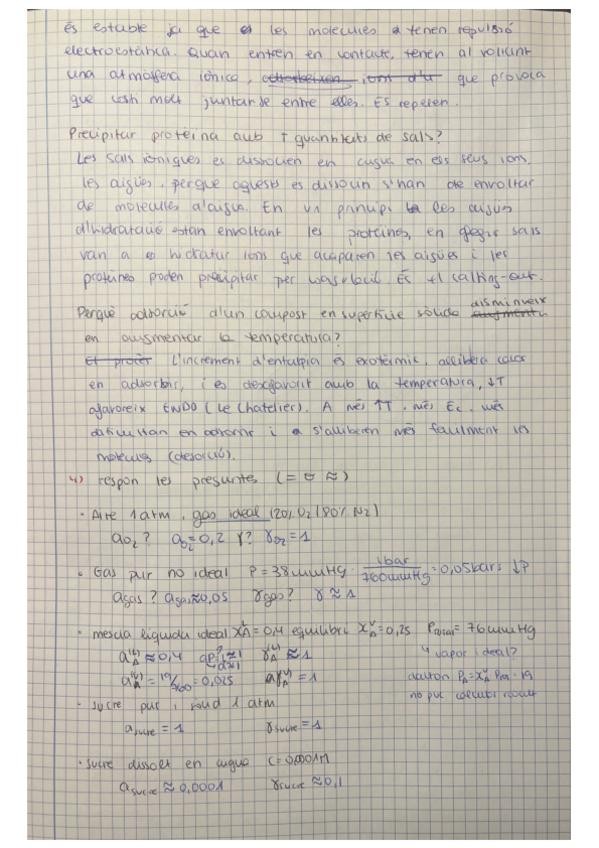 és estable ja que les molècules tenen repulsió
electroestàtica. Quan entren en contacte, tenen al voltant
una atmòsfera iònica, que provoca
que costi molt juntar-se entre elles. Es repelen.
Precipitar proteïna amb ↑ quantitats de sals?
Les sals iòniques es dissolen en aigua en els seus ions.
les aigües, perquè aquests es dissolin s'han de envoltar
de molècules d'aigua. En un principi les aigües
d'hidratació estan envoltant les proteïnes, en afegir sals
van a hidratar ions que acaparen les aigües i les
proteïnes poden precipitar per insolubil. És el salting-out.
Perquè adsorció d'un compost en superfície sòlida disminueix
en augmentar la temperatura?
L'increment d'entalpia és exotèrmic, allibera calor
en adsorbir, i es desfavorit amb la temperatura, ↓T
afavoreix ENDO (Le Chatelier). A més ↑T, més Ec, més
dificultan en adsorbir i s'alliberen més fàcilment les
molècules (desorció).
4) respon les preguntes (= o ≈)
· Aire 1 atm, gas ideal (20% O2/80% N2)
aO2? aO2=0,2 γ? γO2=1
· Gas pur no ideal P=38mmHg · 1bar/760mmHg = 0,05bars ↓P
agas? agas≈0,05 γgas? γ≈1
· mescla líquida ideal XA^L=0,4 equilibri XA^V=0,25 Ptotal=76mmHg
aA^(L)≈0,4 γA^(L)≈1 vapor ideal?
aA^(V)=19/760=0,025 γA^(V)=1 dalton PA=XA^V Ptot=19
· sucre pur i sòlid 1 atm no puc
asucre=1 γsucre=1
· sucre dissolt en aigua C=0,0001M
asucre≈0,0001 γsucre≈0,1